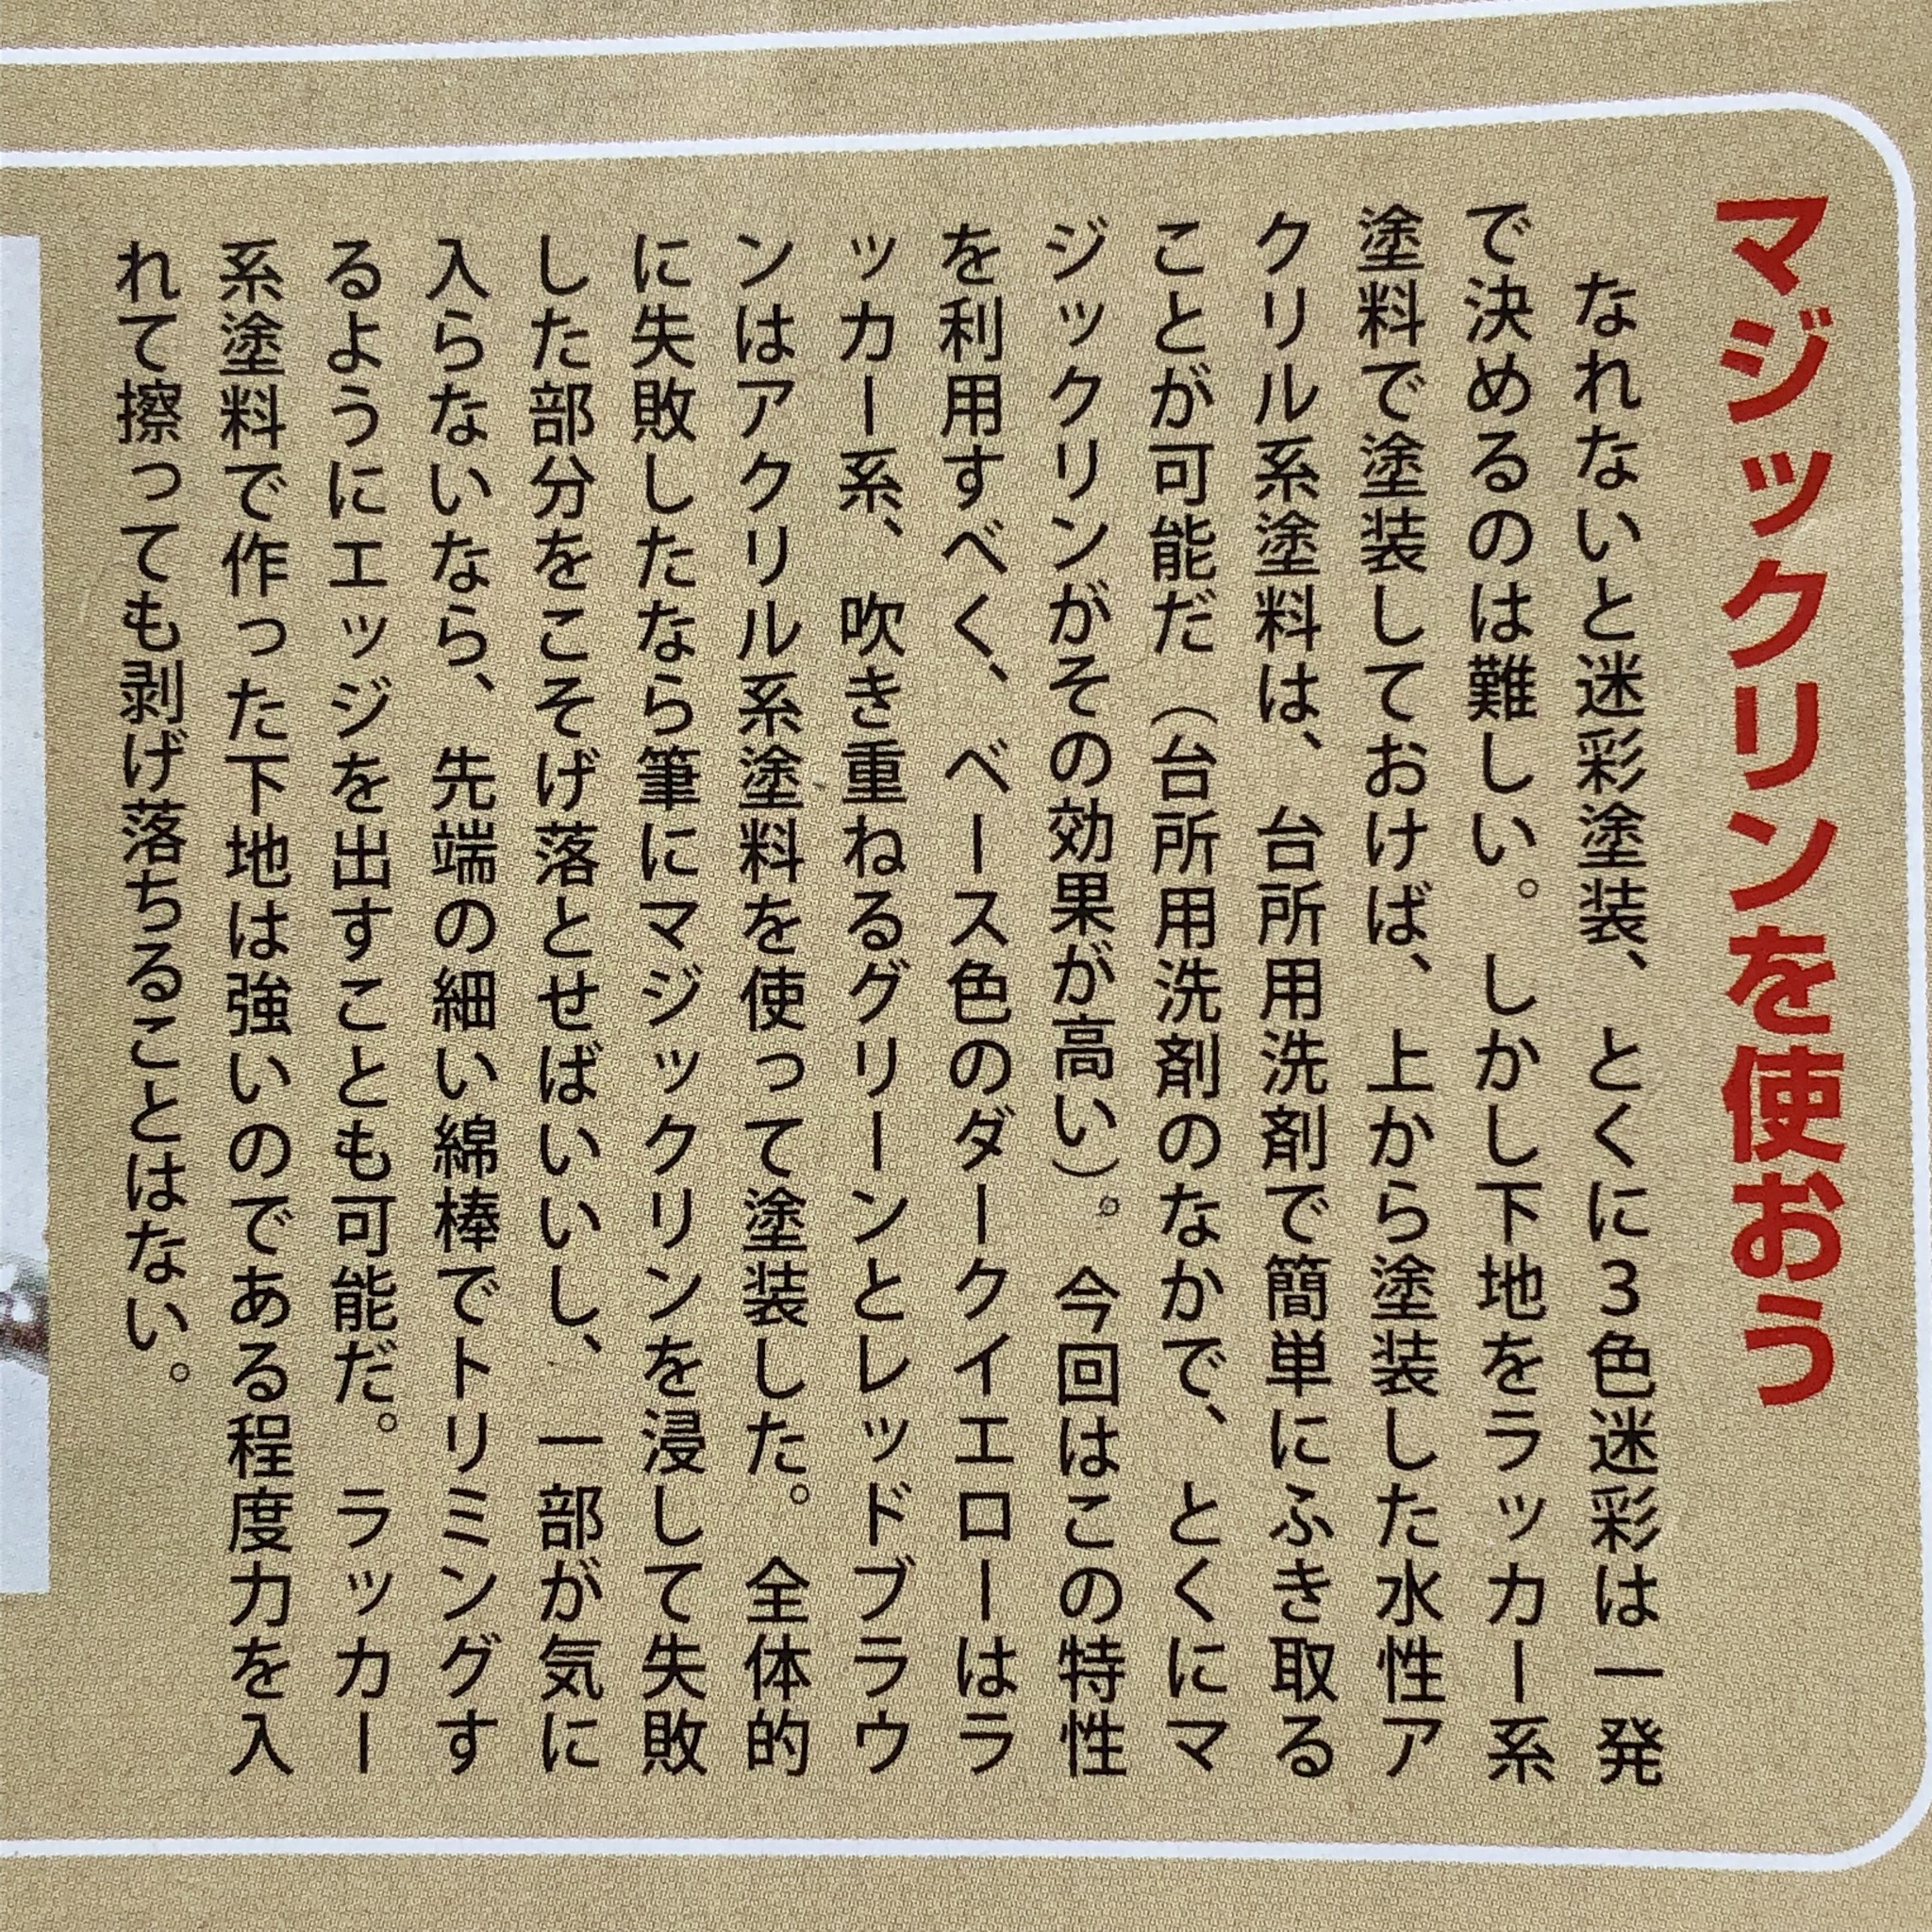 マジックリンを使おう
なれないと迷彩塗装、とくに3色迷彩は一発
で決めるのは難しい。しかし下地をラッカー系
塗料で塗装しておけば、上から塗装した水性ア
クリル系塗料は、台所用洗剤で簡単にふき取る
ことが可能だ（台所用洗剤のなかで、とくにマ
ジックリンがその効果が高い）。今回はこの特性
を利用すべく、ベース色のダークイエローはラ
ッカー系、吹き重ねるグリーンとレッドブラウ
ンはアクリル系塗料を使って塗装した。全体的
に失敗したなら筆にマジックリンを浸して失敗
した部分をこそげ落とせばいいし、一部が気に
入らないなら、先端の細い綿棒でトリミングす
るようにエッジを出すことも可能だ。ラッカー
系塗料で作った下地は強いのである程度力を入
れて擦っても剥げ落ちることはない。